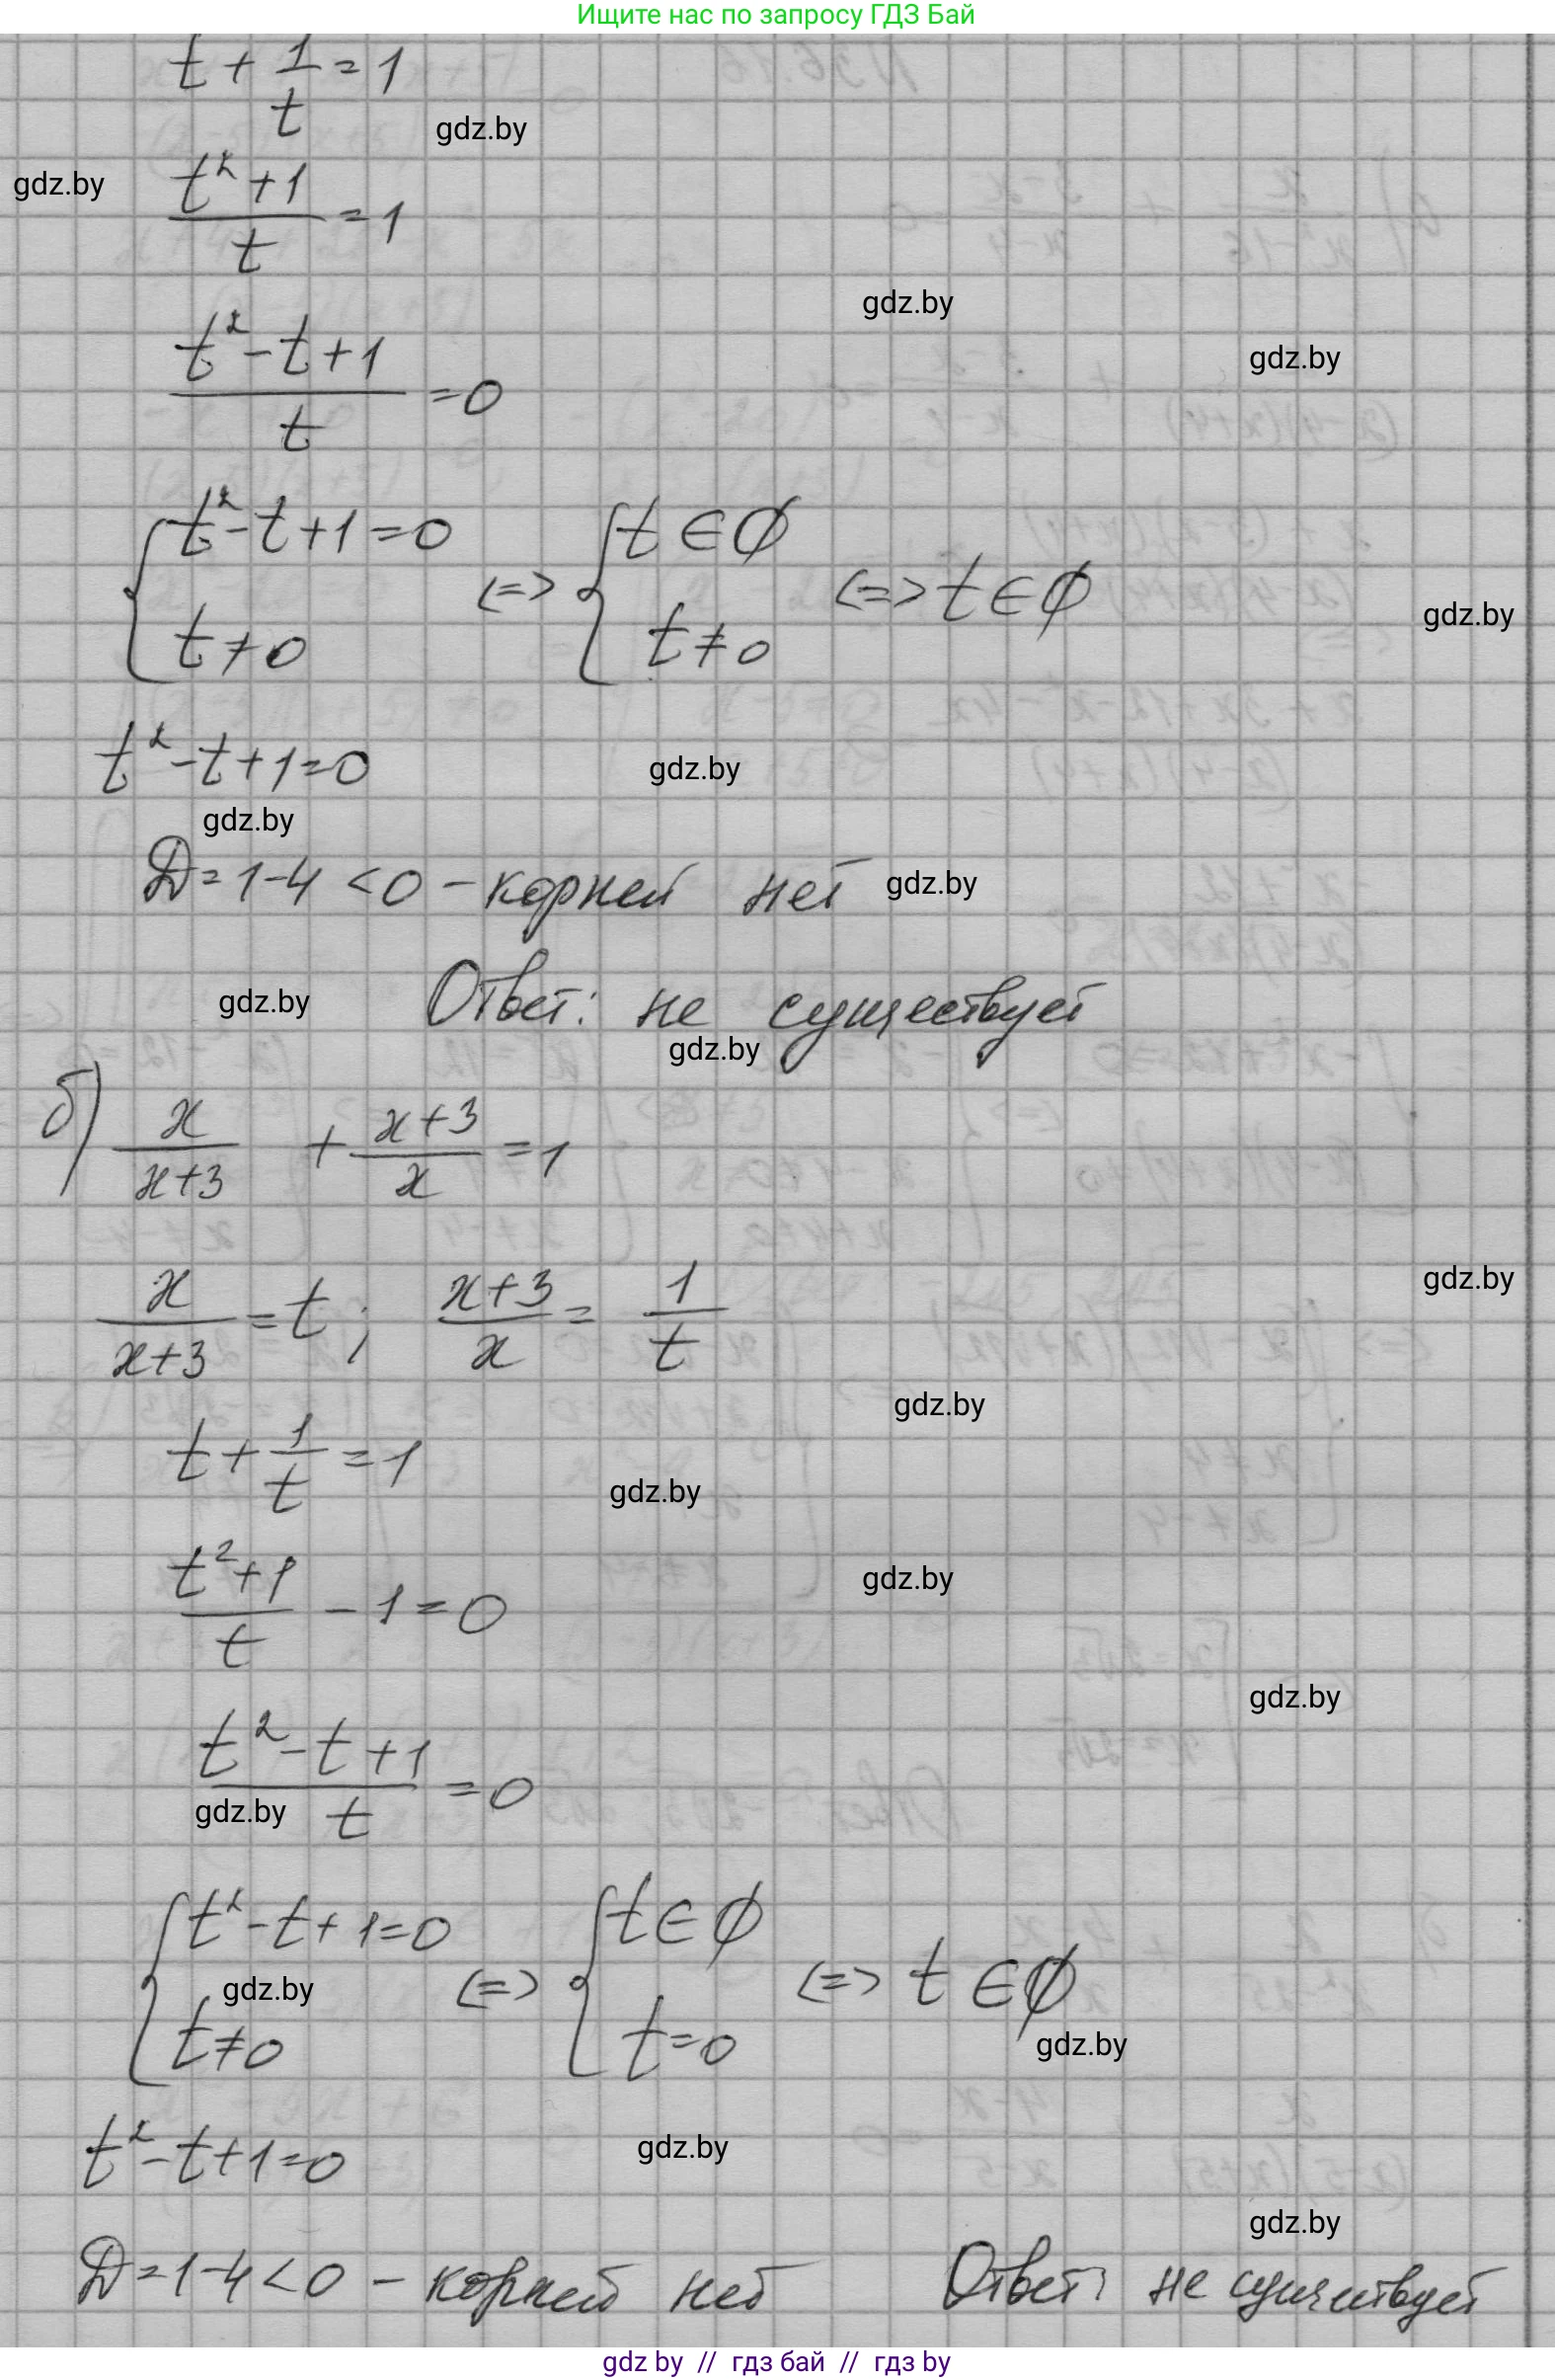 Ищите нас по запросу ГДЗ Бай
t + 1/t = 1
gdz.by
gdz.by
(t² + 1)/t = 1
gdz.by
(t² - t + 1)/t = 0
gdz.by
{ t² - t + 1 = 0; t ≠ 0 <=> { t ∈ ∅; t ≠ 0 <=> t ∈ ∅
gdz.by
t² - t + 1 = 0
gdz.by
gdz.by
Д = 1 - 4 < 0 - корней нет
gdz.by
gdz.by
Ответ: не существует
gdz.by
б) x/(x+3) + (x+3)/x = 1
gdz.by
x/(x+3) = t; (x+3)/x = 1/t
gdz.by
t + 1/t = 1
gdz.by
gdz.by
(t² + 1)/t - 1 = 0
gdz.by
(t² - t + 1)/t = 0
gdz.by
{ t² - t + 1 = 0; t ≠ 0 <=> { t ∈ ∅; t = 0 <=> t ∈ ∅
gdz.by
gdz.by
t² - t + 1 = 0
gdz.by
gdz.by
Д = 1 - 4 < 0 - корней нет Ответ: не существует
gdz by // гдз бай // гдз by